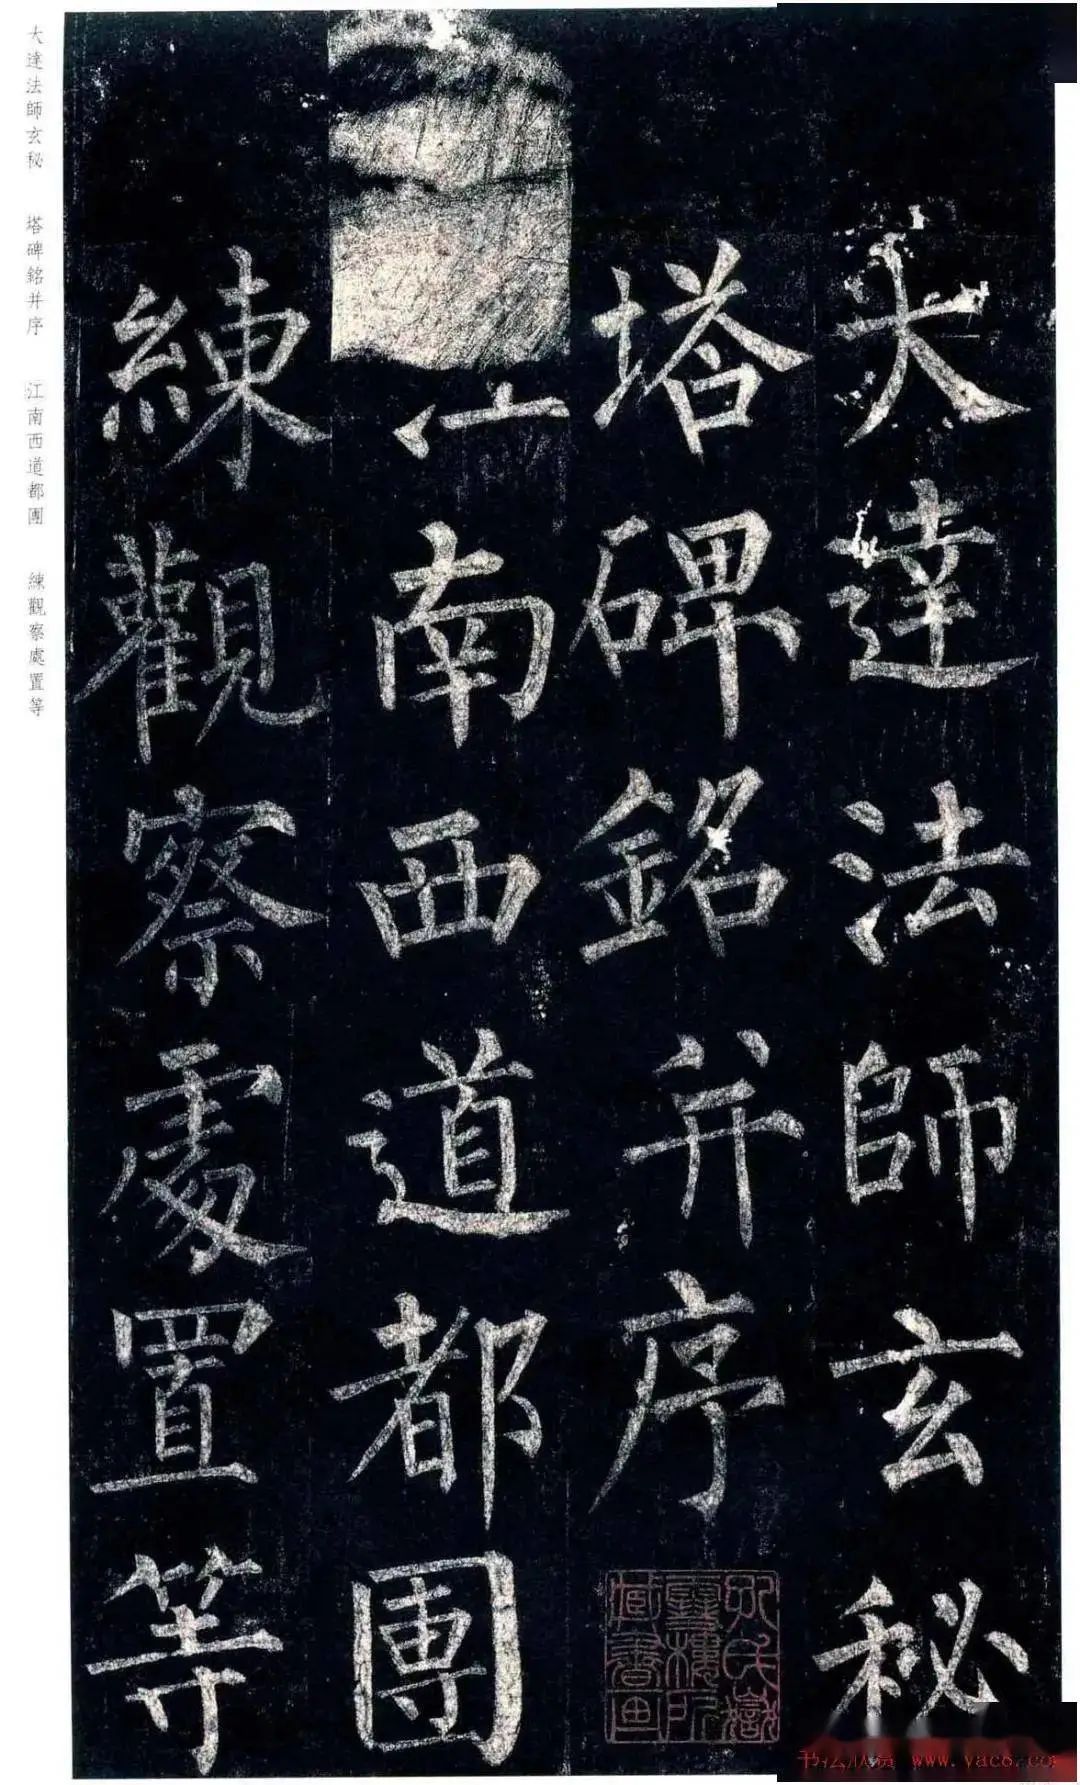 大達法師玄秘
塔碑銘并序
江南西道都團
練觀察處置等
大達法師玄秘 塔碑銘并序 江南西道都團 練觀察處置等
書法欣賞 www.yac8.com